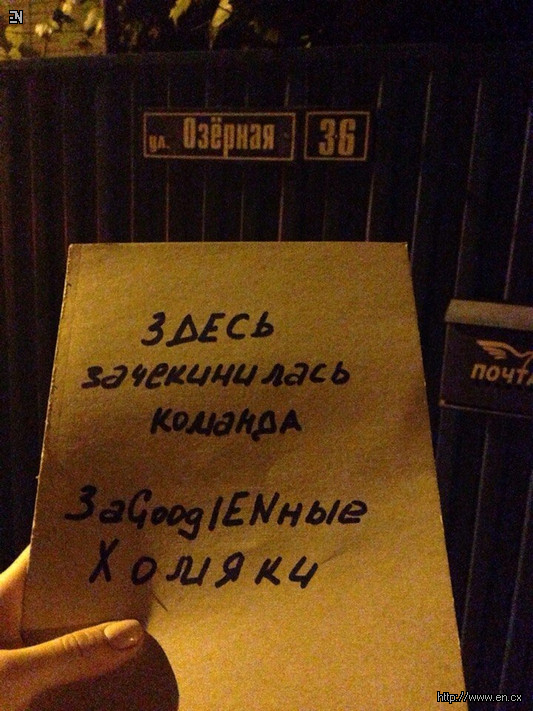 EN
ул. Озёрная 36
ЗДЕСЬ
зачекинилась
команда
ЗаGooglENные
Хомяки
почта
http://www.en.cx